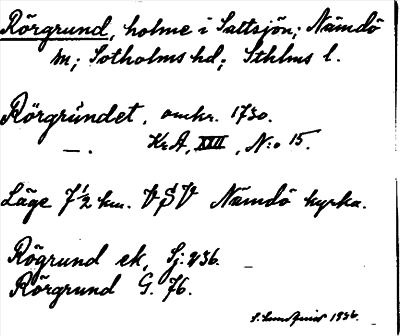 Rörgrund, holme i Saltsjön; Nämdö
sn; Sotholms hd; Sthlms l.
Rörgrundet, omkr. 1730.
—. Kr.A, XXII, N:o 15.
Läge 7½ km. VSV Nämdö kyrka.
Rögrund ek, Sj. 236.
Rörgrund G. 76.
1936.